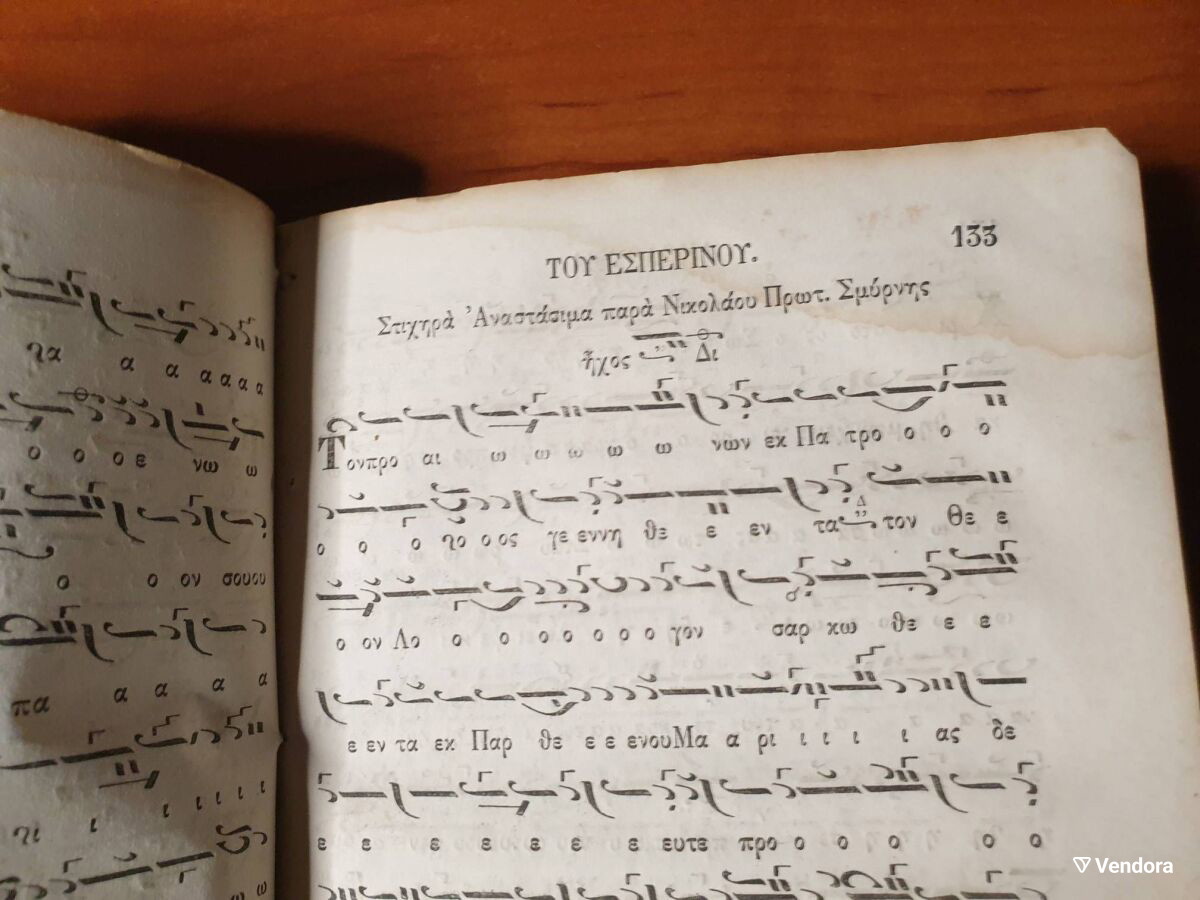 τα α α α α α α
ο ο ο ε νω ω
ο ο ον σουου
πα α α α α
τι ι ι ι ι ι
ω ω
ΤΟΥ ΕΣΠΕΡΙΝΟΥ. 133
Στιχηρὰ Ἀναστάσιμα παρὰ Νικολάου Πρωτ. Σμύρνης
ἦχος Δι
Τονπρο αι ω ω ω ω ω νων εκ Πα τρο ο ο ο
ο ο ο το ο ος γε εννη θε ε εν τα τον Θε ε
ο ον Λο ο ο ο ο ο ο ο γον σαρ κω θε ε ε
ε εν τα εκ Παρ θε ε ε ενουΜα α ρι ι ι ι ι ας δε
ε ε ε ε ε ε ε ευτε προ ο ο ο ο ο
Vendora